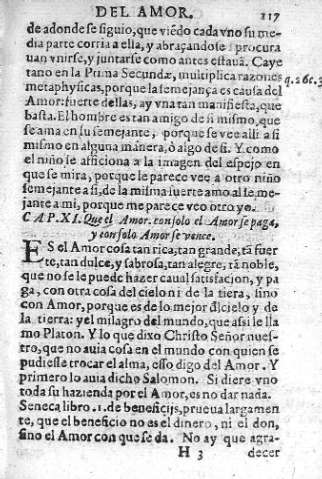 DEL AMOR. 117
de adonde se siguio, que viẽdo cada vno su me-
dia parte corria a ella, y abraçandose: procura
uan vnirse, y juntarse como antes estauã. Caye
tano en la Prima Secundæ, multiplica razones
q. 26 c. 3
metaphysicas, porque la semejança es causa del
Amor: fuerte dellas, ay vna tan manifiesta, que
basta. El hombre es tan amigo de si mismo, que
se ama en su semejante, porque se vee alli a si
mismo en alguna manera, ò algo de si. Y como
el niño se afficiona a la imagen del espejo en
que se mira, porque le parece vee a otro niño
semejante a si, de la misma fuerte amo al seme-
jante a mi, porque me parece veo otro yo.
CAP. XI. Que el Amor con solo el Amor se paga,
y con solo Amor se vence.
ES el Amor cosa tan rica, tan grande, tã fuer
te, tan dulce, y sabrosa, tan alegre, tã noble,
que no se le puede hazer caual satisfacion, y pa
ga, con otra cosa del cielo ni de la tiera, sino
con Amor, porque es de lo mejor dl cielo y de
la tierra: y el milagro del mundo, que assi le lla
mo Platon. Y lo que dixo Christo Señor nues-
tro, que no auia cosa en el mundo con quien se
pudiesse trocar el alma, esso digo del Amor. Y
primero lo auia dicho Salomon. Si diere vno
toda su hazienda por el Amor, es no dar nada.
Seneca libro. 1. de beneficijs, prueua largamen
te, que el beneficio no es el dinero, ni el don,
sino el Amor con que se da. No ay que agra-
H 3 decer